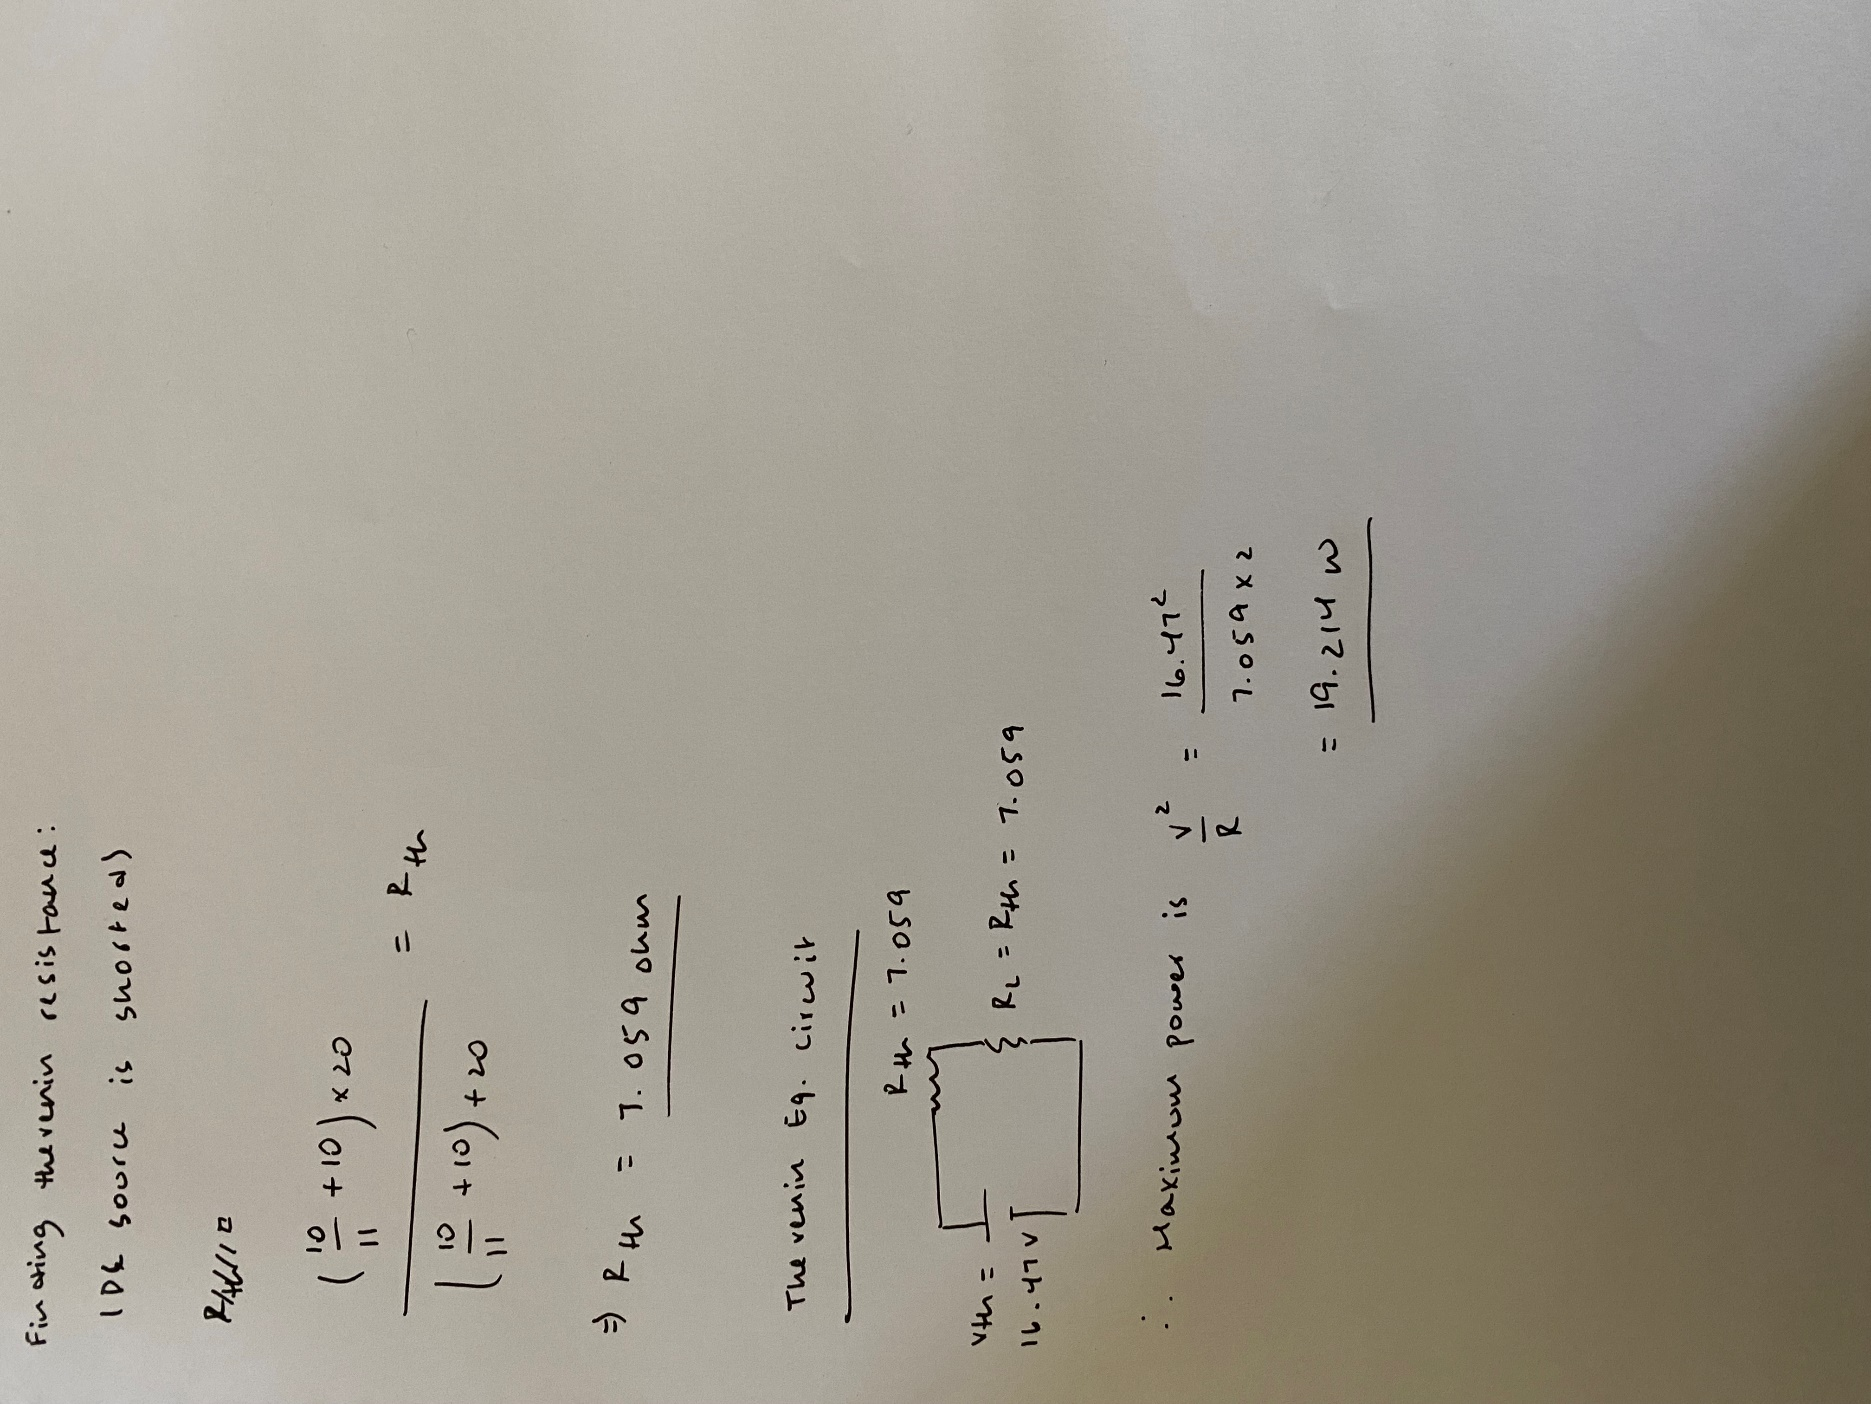 Finding thevenin resistance:
(DC source is shorted)
(10/11 + 10) × 20
—————————— = Rth
(10/11 + 10) + 20
⇒ Rth = 7.059 ohm
Thevenin Eq. circuit
Rth = 7.059
Vth =
16.47V
RL = Rth = 7.059
∴ Maximum power is V²/R = 16.47²/7.059 × 2
= 19.214 W